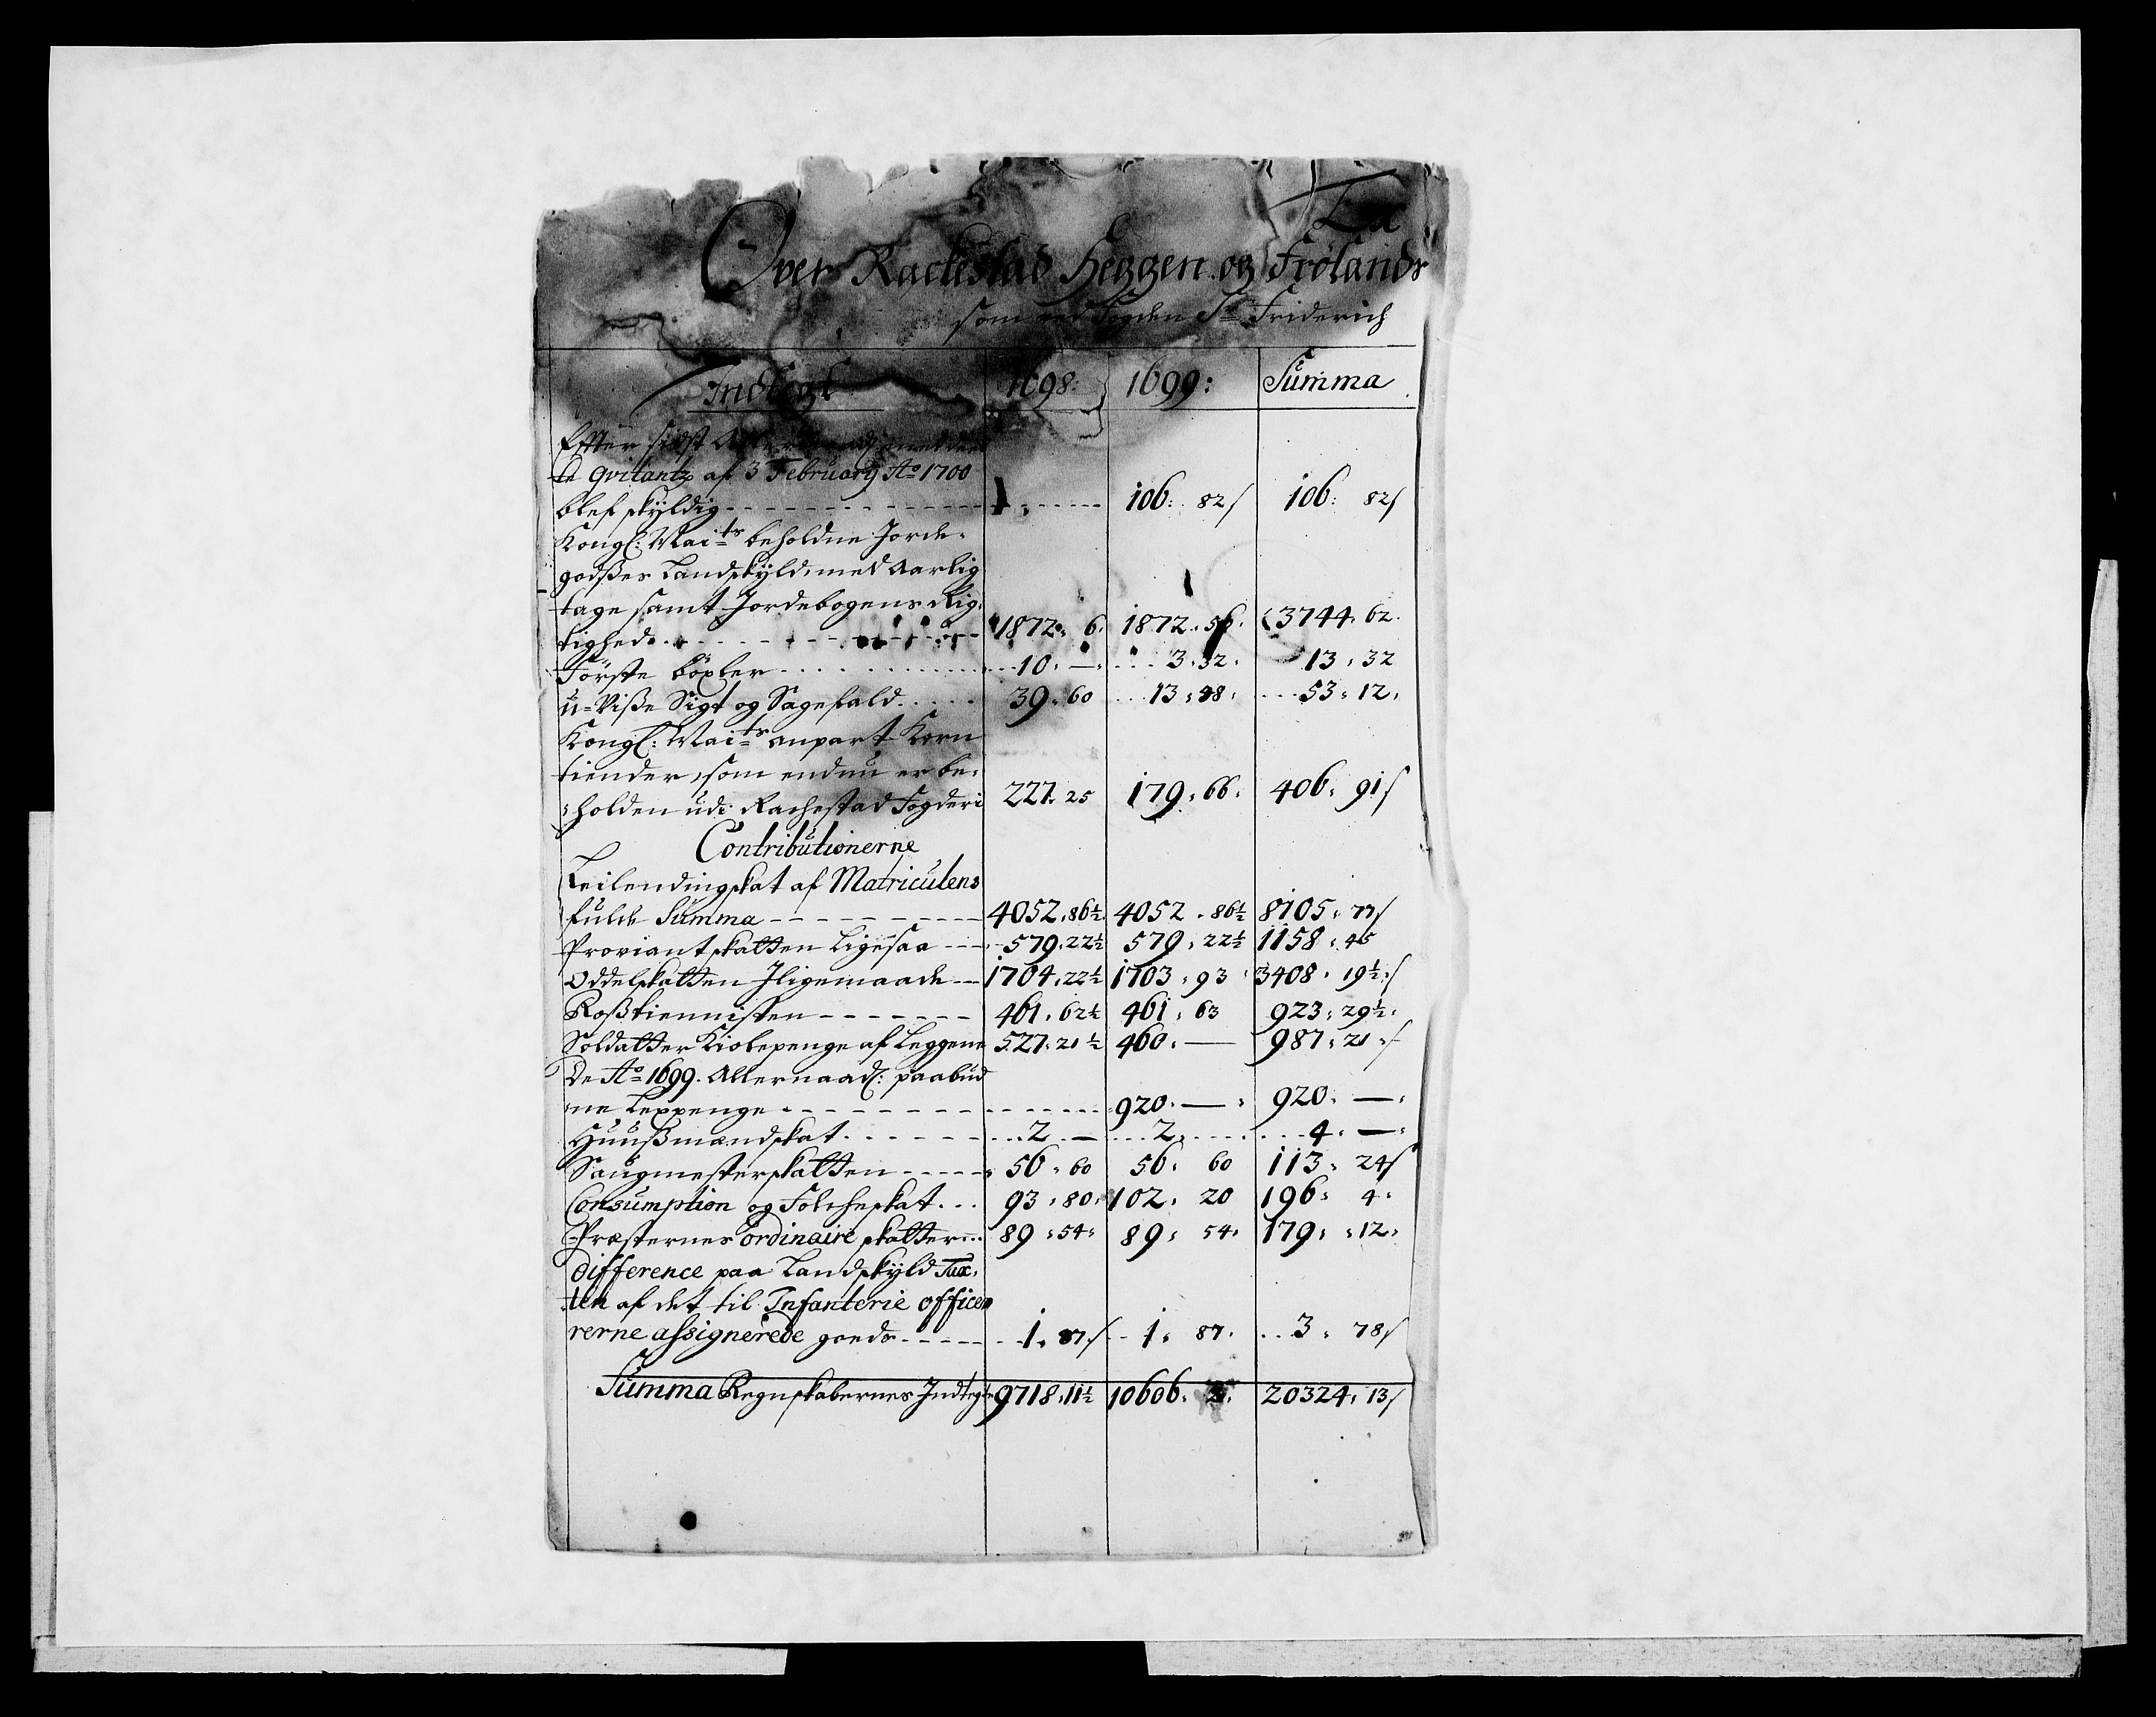 Ex
Over Rackestad Heggen og Frølands
som ved Fogden Sr Friderich
Indtegt 1698: 1699: Summa
Efter sidst Aller
te Qvitantz af 3 February Ao 1700
blef skyldig - - - 106: 82 106: 82
Kongl: Maits beholdne Jorde-
godses Landskyld, med Aarlig
tage samt Jordebogens Rig-
tighed 1872: 6 1872: 56 3744: 62
Første böxler 10: — 3: 32 13: 32
u-visse Sigt og Sagefald 39: 60 13: 48 53: 12
Kongl: Maits anpart Korn
tiender, som endnu er be-
holden udi Rachestad Fogderi 227: 25 179: 66 406: 91
Contributionerne
Leilendingskat af Matriculens
fulde Summa 4052: 86½ 4052: 86½ 8105: 77
Proviantskatten Ligesaa 579: 22½ 579: 22½ 1158: 45
Oddelskatten Jligemaade 1704: 22½ 1703: 93 3408: 19½
Rosstiennisten 461: 62½ 461: 63 923: 29½
Soldatter Kiolepenge af Leggene 527: 21½ 460: — 987: 21
De Ao 1699. Allernaadl: paabud
ne Leppenge 920: — 920: —
Huussmandskat 2: — 2 4: —
Saugmesterskatten 56: 60 56: 60 113: 24
Consumption og Folcheskat 93: 80 102: 20 196: 4
Præsternes ordinaire skatter 89: 54 89: 54 179: 12
difference paa Landskyld Tax-
ten af det til Infanterie office
rerne assignerede goeds 1: 87 1: 87 3: 78
Summa Regnskabernes Indtegt 9718: 11½ 10606: 2 20324: 13